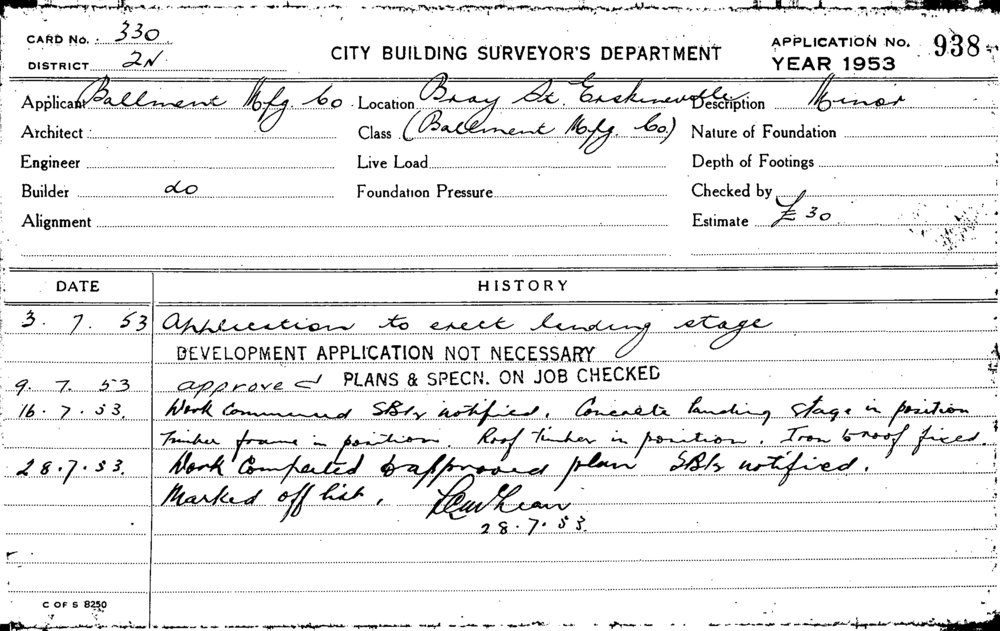 CARD No. 330
DISTRICT 2N
CITY BUILDING SURVEYOR'S DEPARTMENT
APPLICATION No. 938
YEAR 1953
Applicant Ballment Mfg. Co. Location Bray St. Erskineville Description Minor
Architect Class (Ballment Mfg. Co.) Nature of Foundation
Engineer Live Load Depth of Footings
Builder do Foundation Pressure Checked by
Alignment Estimate £30
DATE HISTORY
3. 7. 53 Application to erect landing stage
DEVELOPMENT APPLICATION NOT NECESSARY
9. 7. 53 approved PLANS & SPECN. ON JOB CHECKED
16. 7. 53. Work Commenced notified. Concrete landing stage in position
Timber frame in position. Roof timber in position. Iron to roof fixed.
28. 7. 53. Work Completed to approved plan notified.
Marked off list.
28. 7. 53.
C OF S 8250